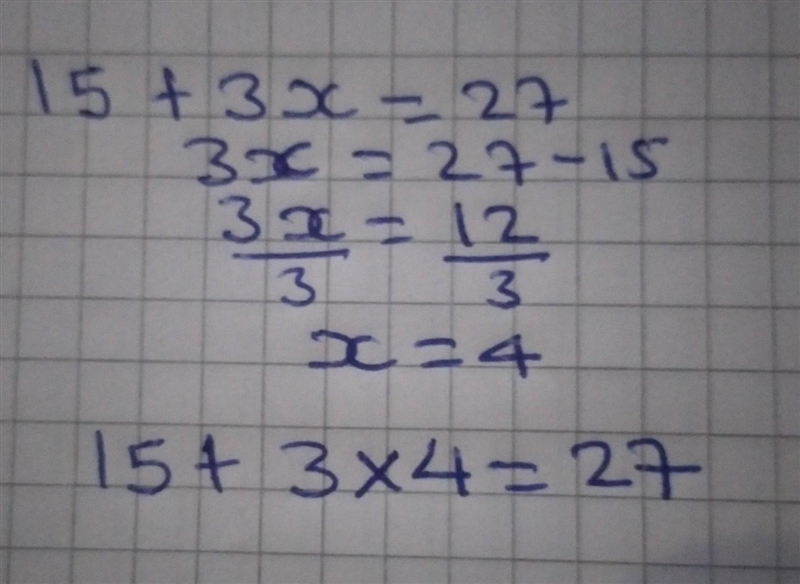 15 + 3x = 27
3x = 27 - 15
3x/3 = 12/3
x = 4
15 + 3 × 4 = 27